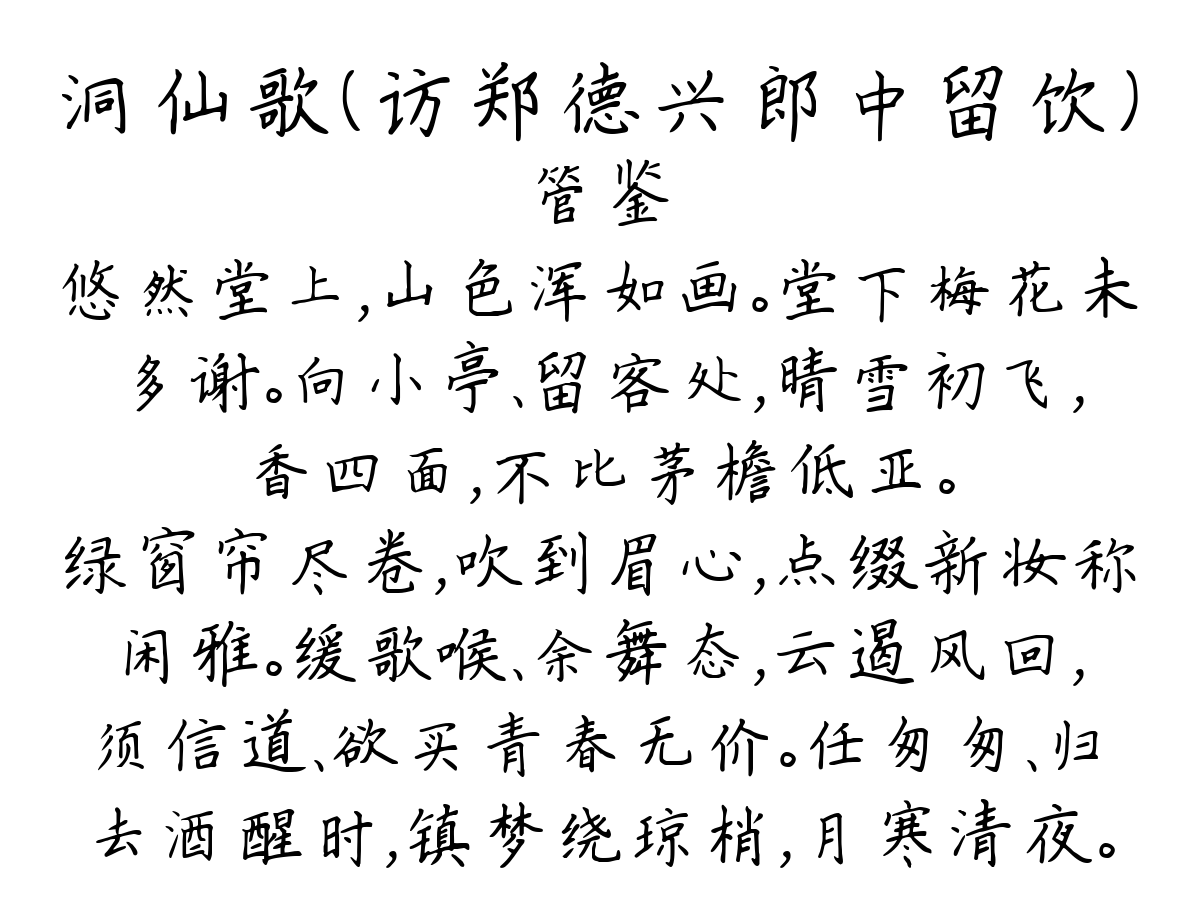 洞仙歌(访郑德兴郎中留饮)
管鉴
悠然堂上,山色浑如画。堂下梅花未
多谢。向小亭、留客处,晴雪初飞,
香四面,不比茅檐低亚。
绿窗帘尽卷,吹到眉心,点缀新妆称
闲雅。缓歌喉、余舞态,云遏风回,
须信道、欲买青春无价。任匆匆、归
去酒醒时,镇梦绕琼梢,月寒清夜。